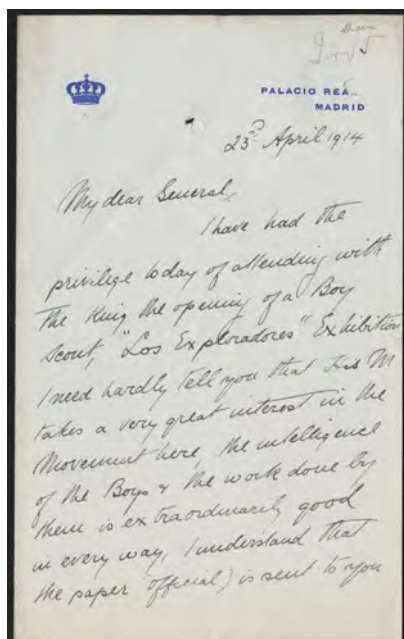 PALACIO REAL
MADRID
23rd April 1914
My dear General,
I have had the
privilege today of attending with
the King the opening of a Boy
Scout, "Los Exploradores" Exhibition
I need hardly tell you that His M
takes a very great interest in the
Movement here, the intelligence
of the Boys & the work done by
them is extraordinarily good
in every way, I understand that
the paper official) is sent to you